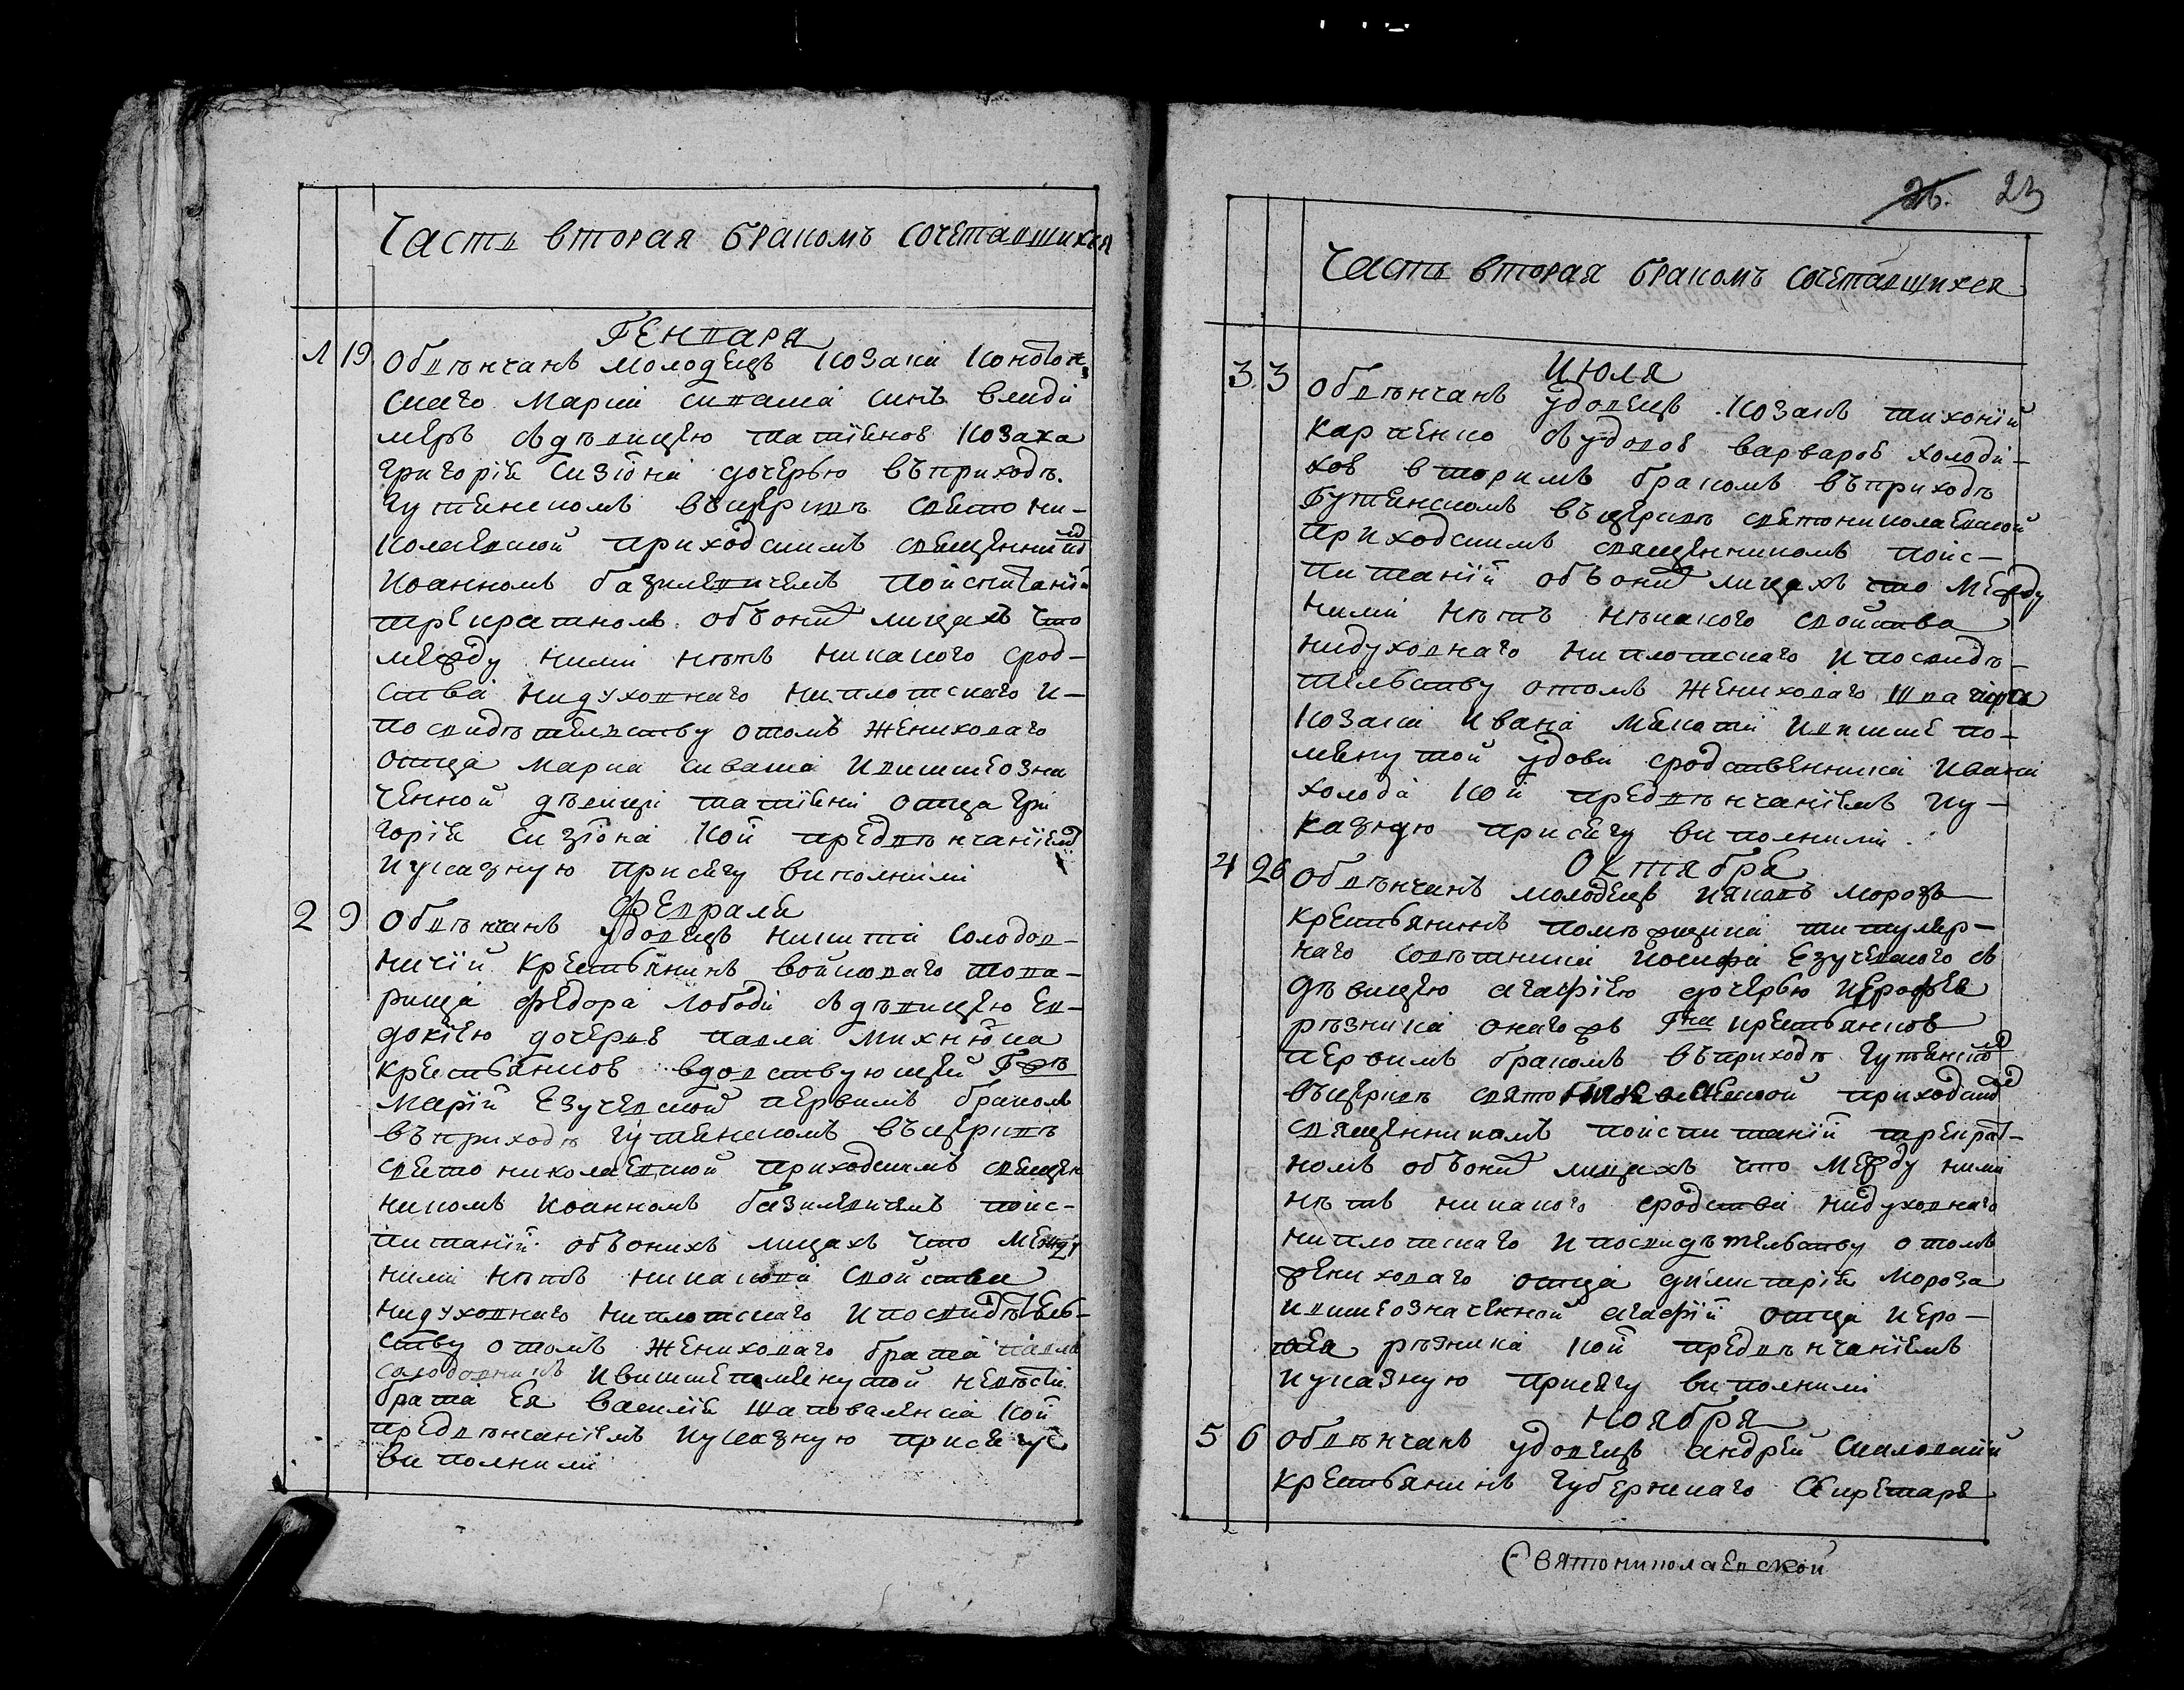 Часть вторая браком сочетавшихся
Генваря
1 19 Обвѣнчанъ молодецъ козака
скаго Марка сиваша синъ влиди
меръ съдѣвицею татіѣною козака
григорія Сизіона дочерью въприходѣ
гутянскомъ въцерквѣ свято ни-
колаевской приходскимъ священником
Иоанномъ базилевичемъ поиспитаніи
трекратномъ объоних лицахъ что
между ними нѣтъ никакого срод-
ства нидуховнаго ниплотскаго и-
посвидѣтельству отомъ жениховаго
отца Марка сиваша ивишеозна
ченной дѣвици татіѣни отца гри
горія Сизіона кои предвѣнчаніем
иуказную присягу виполнили
Февраля
2 9 Обвѣнчанъ удовецъ никита Солодов-
ничій крестьянинъ войсковаго това-
рища федора лободи съдѣвицею ев-
докіею дочеръю павла михнюка
крестьянкою вдовствующей Гжѣ
Маріи Езучевской первимъ бракомъ
въприходѣ гутянскомъ въцерквѣ
свято николаевской приходскимъ священ
никомъ Иоанномъ базилевичемъ поис-
питаніи объонихъ лицахъ что между
ними нѣтъ никакова свойства
нидуховнаго ниплотскаго ипосвидѣтель-
ству отомъ жениховаго брата павла
ивишепомянутой невѣсти
брата Ея василія шаповаленка кои
предвѣнчаніемъ иуказную присягу
виполнили
26. 23
Часть вторая бракомъ сочетавщихся
Июля
3 3 Обвѣнчанъ удовецъ козакъ тихоній
карпенко съудовою варварою холоди-
хою вторимъ бракомъ въприходѣ
гутянскомъ въцерквѣ святониколаевской
приходскимъ священникомъ поис-
питаніи объоних лицахъ что между
ними нѣтъ нѣкакого свойства
нидуховнаго ниплотскаго ипосвидѣ-
тельству отомъ жениховаго
козака ивана микоти ивише по-
мянутой удови сродственника ивана
холода кои предвѣнчаніемъ иу-
казную присягу виполнили
Октября
4 26 Обвѣнчанъ молодецъ ияковъ морозъ
крестьянинъ помѣщика титуляр-
наго совѣтника иосифа Езучевского съ
дѣвицею агафіею дочерью иерофея
рѣзника онагожъ Гна крестьянкою
первимъ бракомъ въприходѣ гутянском
въцерквѣ свято николаевской приходским
священникомъ поиспитаніи трекрат-
номъ объоних лицахъ что между ними
нѣтъ никакого сродства нидуховнаго
ниплотскаго ипосвидѣтельству отомъ
жениховаго отца Мороза
ивишеозначенной агафіи отца иеро-
фея рѣзника кои предвѣнчаніемъ
иуказную присягу виполнили
Ноября
5 6 Обвѣнчанъ удовецъ андрей
крестьянинъ губернскаго Секретаря
Святониколаевской